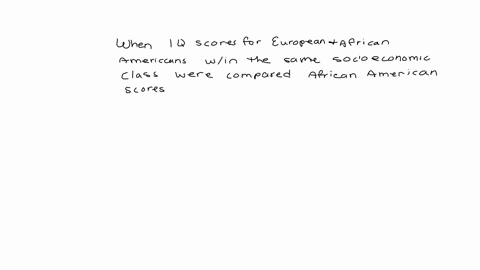 When IQ scores for European + African
Americans w/in the same socioeconomic
class were compared African American
scores